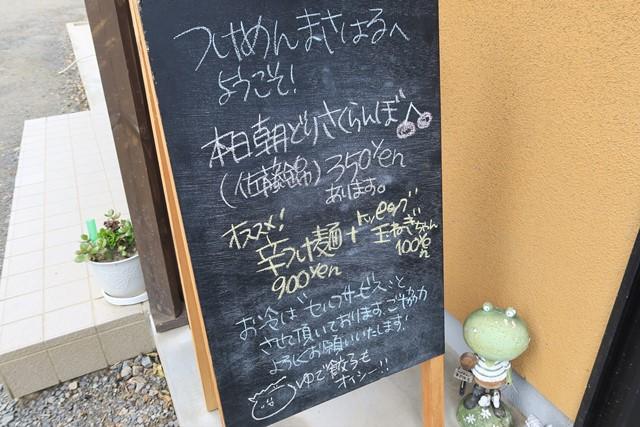 つけめんまさはるへ
ようこそ!
本日朝どりさくらんぼ
(佐藤錦) 350yen
あります。
オススメ!
辛つけ麺 + トッピング
玉ねぎちゃん
900yen
100yen
お冷は"セルフサービス"と
させて頂いております。ご協力
よろしくお願いいたします!
ゆで餃子も
オイシー!!